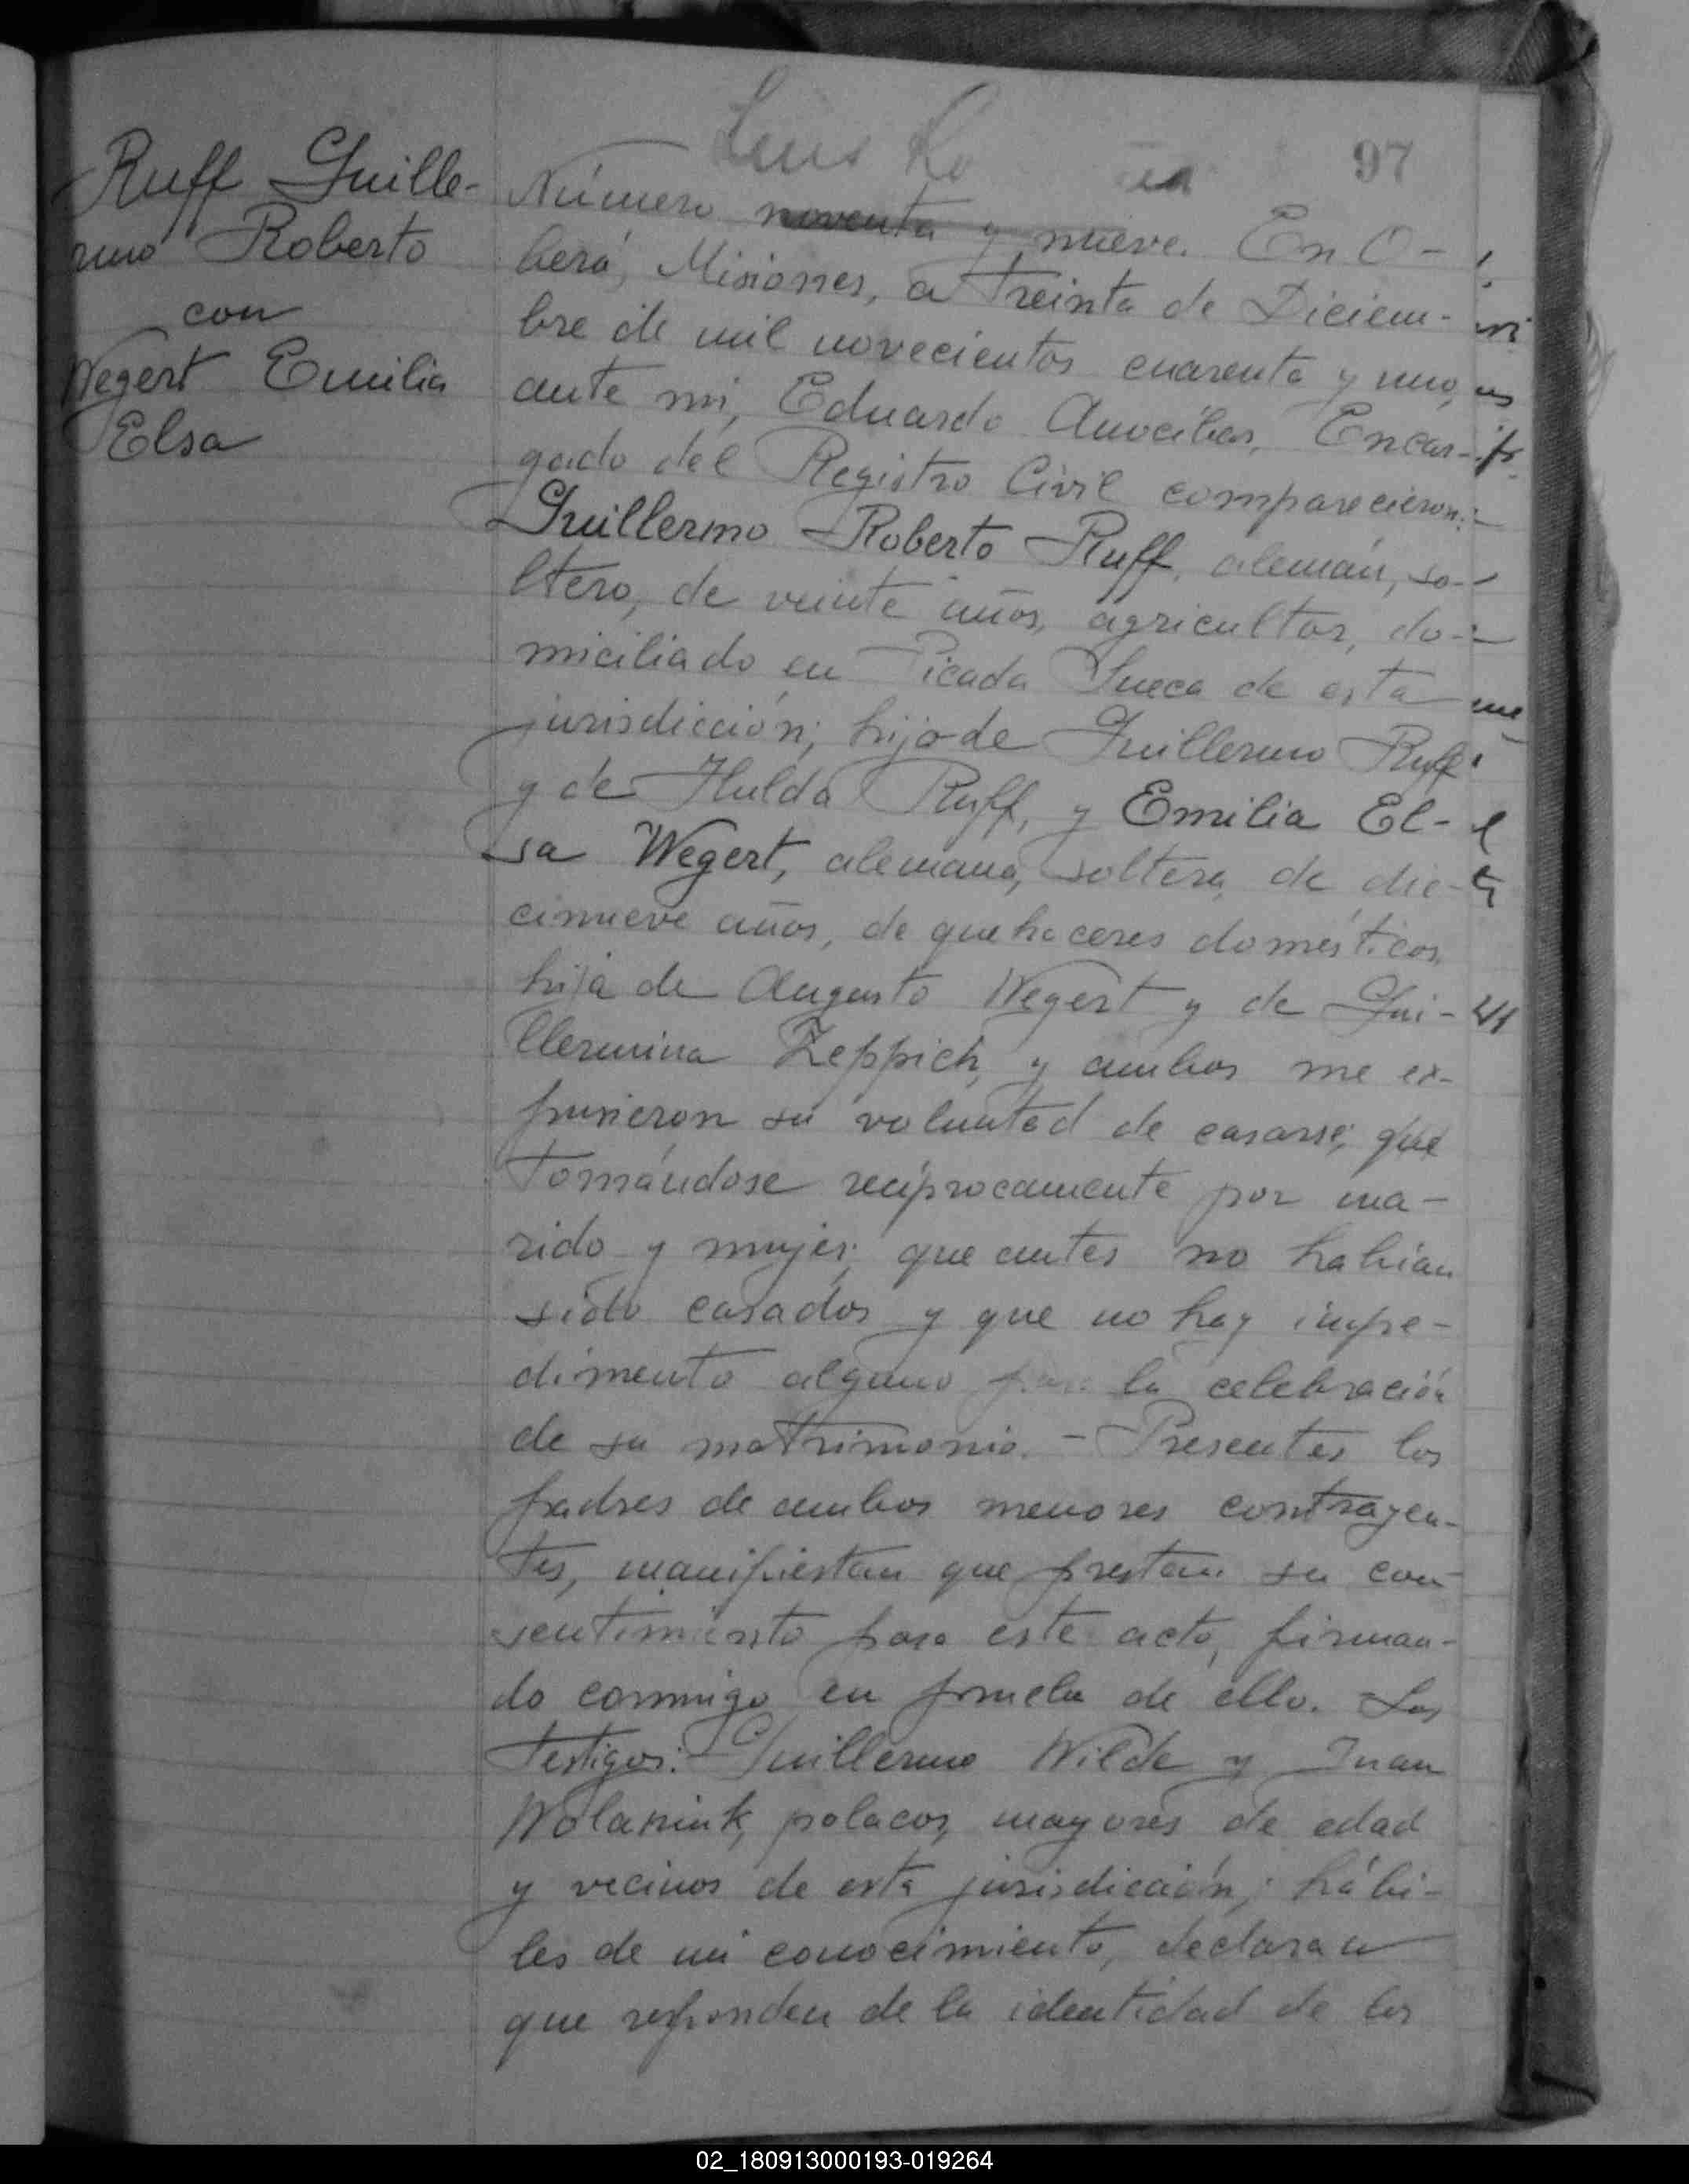 Luis Ro
97
Ruff Guille-
rmo Roberto
con
Wegert Emilia
Elsa
Número noventa y nueve. En O-
berá, Misiones, a treinta de Diciem-
bre de mil novecientos cuarenta y uno,
ante mi, Eduardo Encar-
gado del Registro Civil comparecieron:-
Guillermo Roberto Ruff, alemán, so-
ltero, de veinte años, agricultor, do-
miciliado en Picada Sueca de esta
jurisdicción; hijo de Guillermo Ruff
y de Hulda Ruff, y Emilia El-
sa Wegert, alemana, soltera, de die-
cinueve años, de quehaceres domésticos,
hija de Augusto Wegert y de Gui-
llermina Zeppich, y ambos me ex-
pusieron su voluntad de casarse; que
tomándose recíprocamente por ma-
rido y mujer; que antes no habian
sido casados y que no hay impe-
dimento alguno para la celebración
de su matrimonio. - Presentes los
padres de ambos menores contrayen-
tes, manifiestan que prestan su con-
sentimiento para este acto, firman-
do conmigo en prueba de ello. Los
testigos:- Guillermo Wilde y Juan
Wolanink, polacos, mayores de edad
y vecinos de esta jurisdicción; hábi-
les de mi conocimiento, declaran
que responden de la identidad de los
02_180913000193-019264